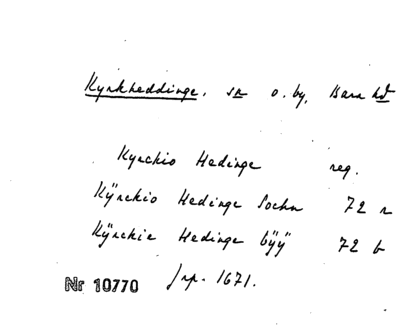 Kyrkheddinge. sn o. by, Bara hd
Kyrckio Hedinge reg.
Kÿrckio Hedinge Sochn 72 r
Kÿrckie Hedinge bÿÿ 72 b
Jrp. 1671.
Nr 10770